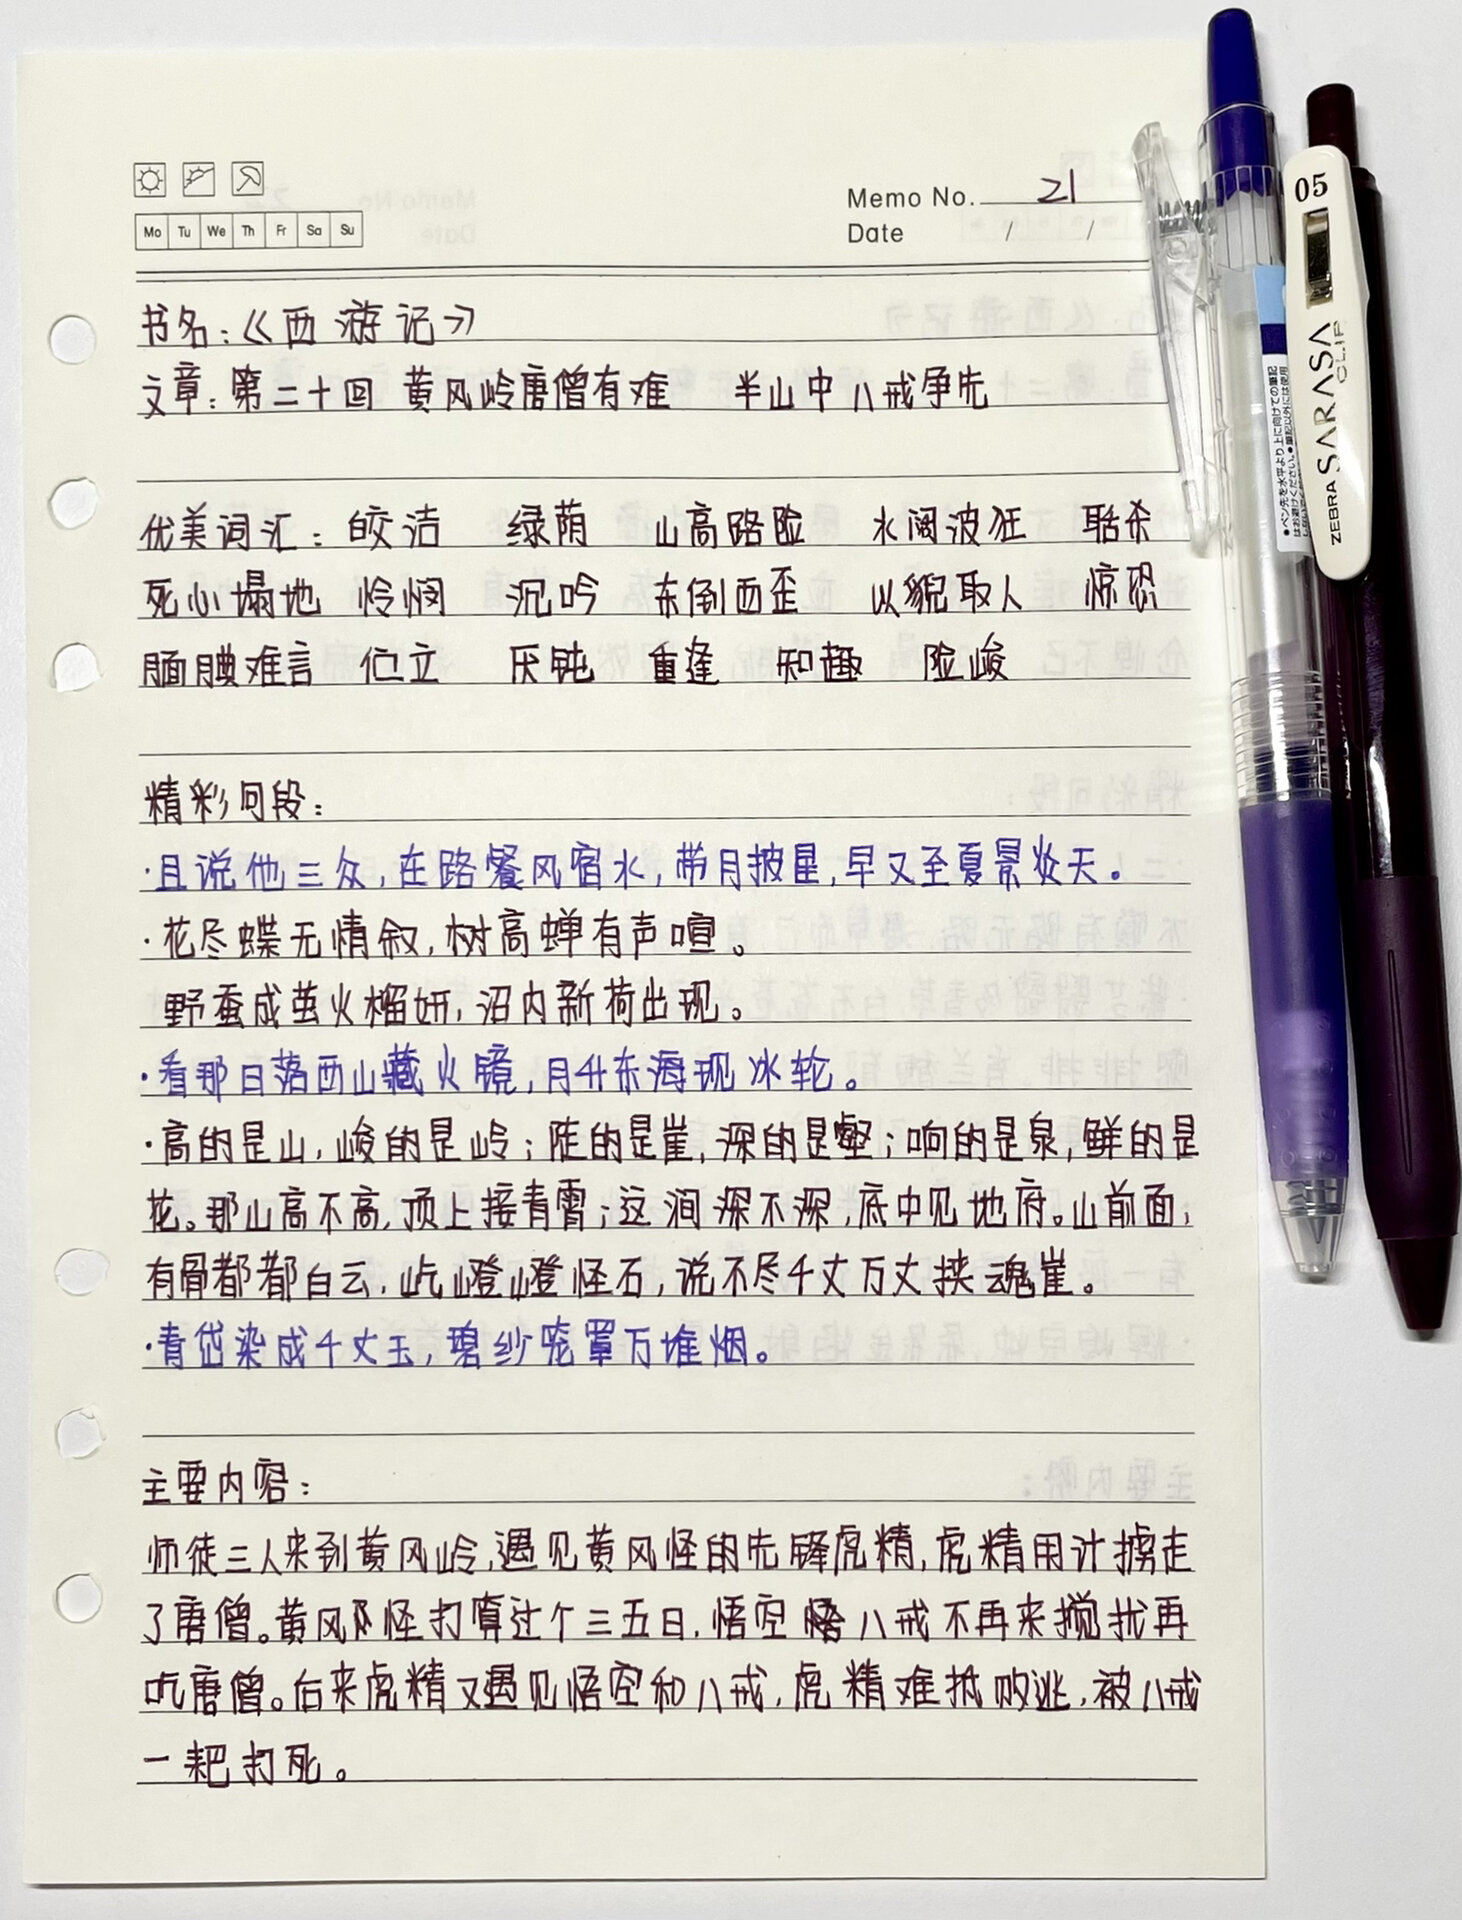 Memo No. 21
Mo Tu We Th Fr Sa Su
Date / /
书名:《西游记》
文章:第二十回 黄风岭唐僧有难 半山中八戒争先
优美词汇: 皎洁 绿荫 山高路险 水阔波狂 聒杀
死心塌地 怜悯 沉吟 东倒西歪 以貌取人 惊恐
腼腆难言 伫立 厌钝 重逢 知趣 险峻
精彩句段:
·且说他三众,在路餐风宿水,带月披星,早又至夏景炎天。
·花尽蝶无情叙,树高蝉有声喧。
野蚕成茧火榴妍,沼内新荷出现。
·看那日落西山藏火镜,月升东海现冰轮。
·高的是山,峻的是岭;陡的是崖,深的是壑;响的是泉,鲜的是
花。那山高不高,顶上接青霄;这涧深不深,底中见地府。山前面,
有骨都都白云,屹嶝嶝怪石,说不尽千丈万丈挟魂崖。
·青岱染成千丈玉,碧纱笼罩万堆烟。
主要内容:
师徒三人来到黄风岭,遇见黄风怪的先锋虎精,虎精用计掳走
了唐僧。黄风怪打算过个三五日,悟空八戒不再来搅扰再
吃唐僧。后来虎精又遇见悟空和八戒,虎精难抵败逃,被八戒
一耙打死。
05
ZEBRA SARASA CLIP
●ペン先を水平より上に向けての筆記
はお避けください。●筆記以外には使用